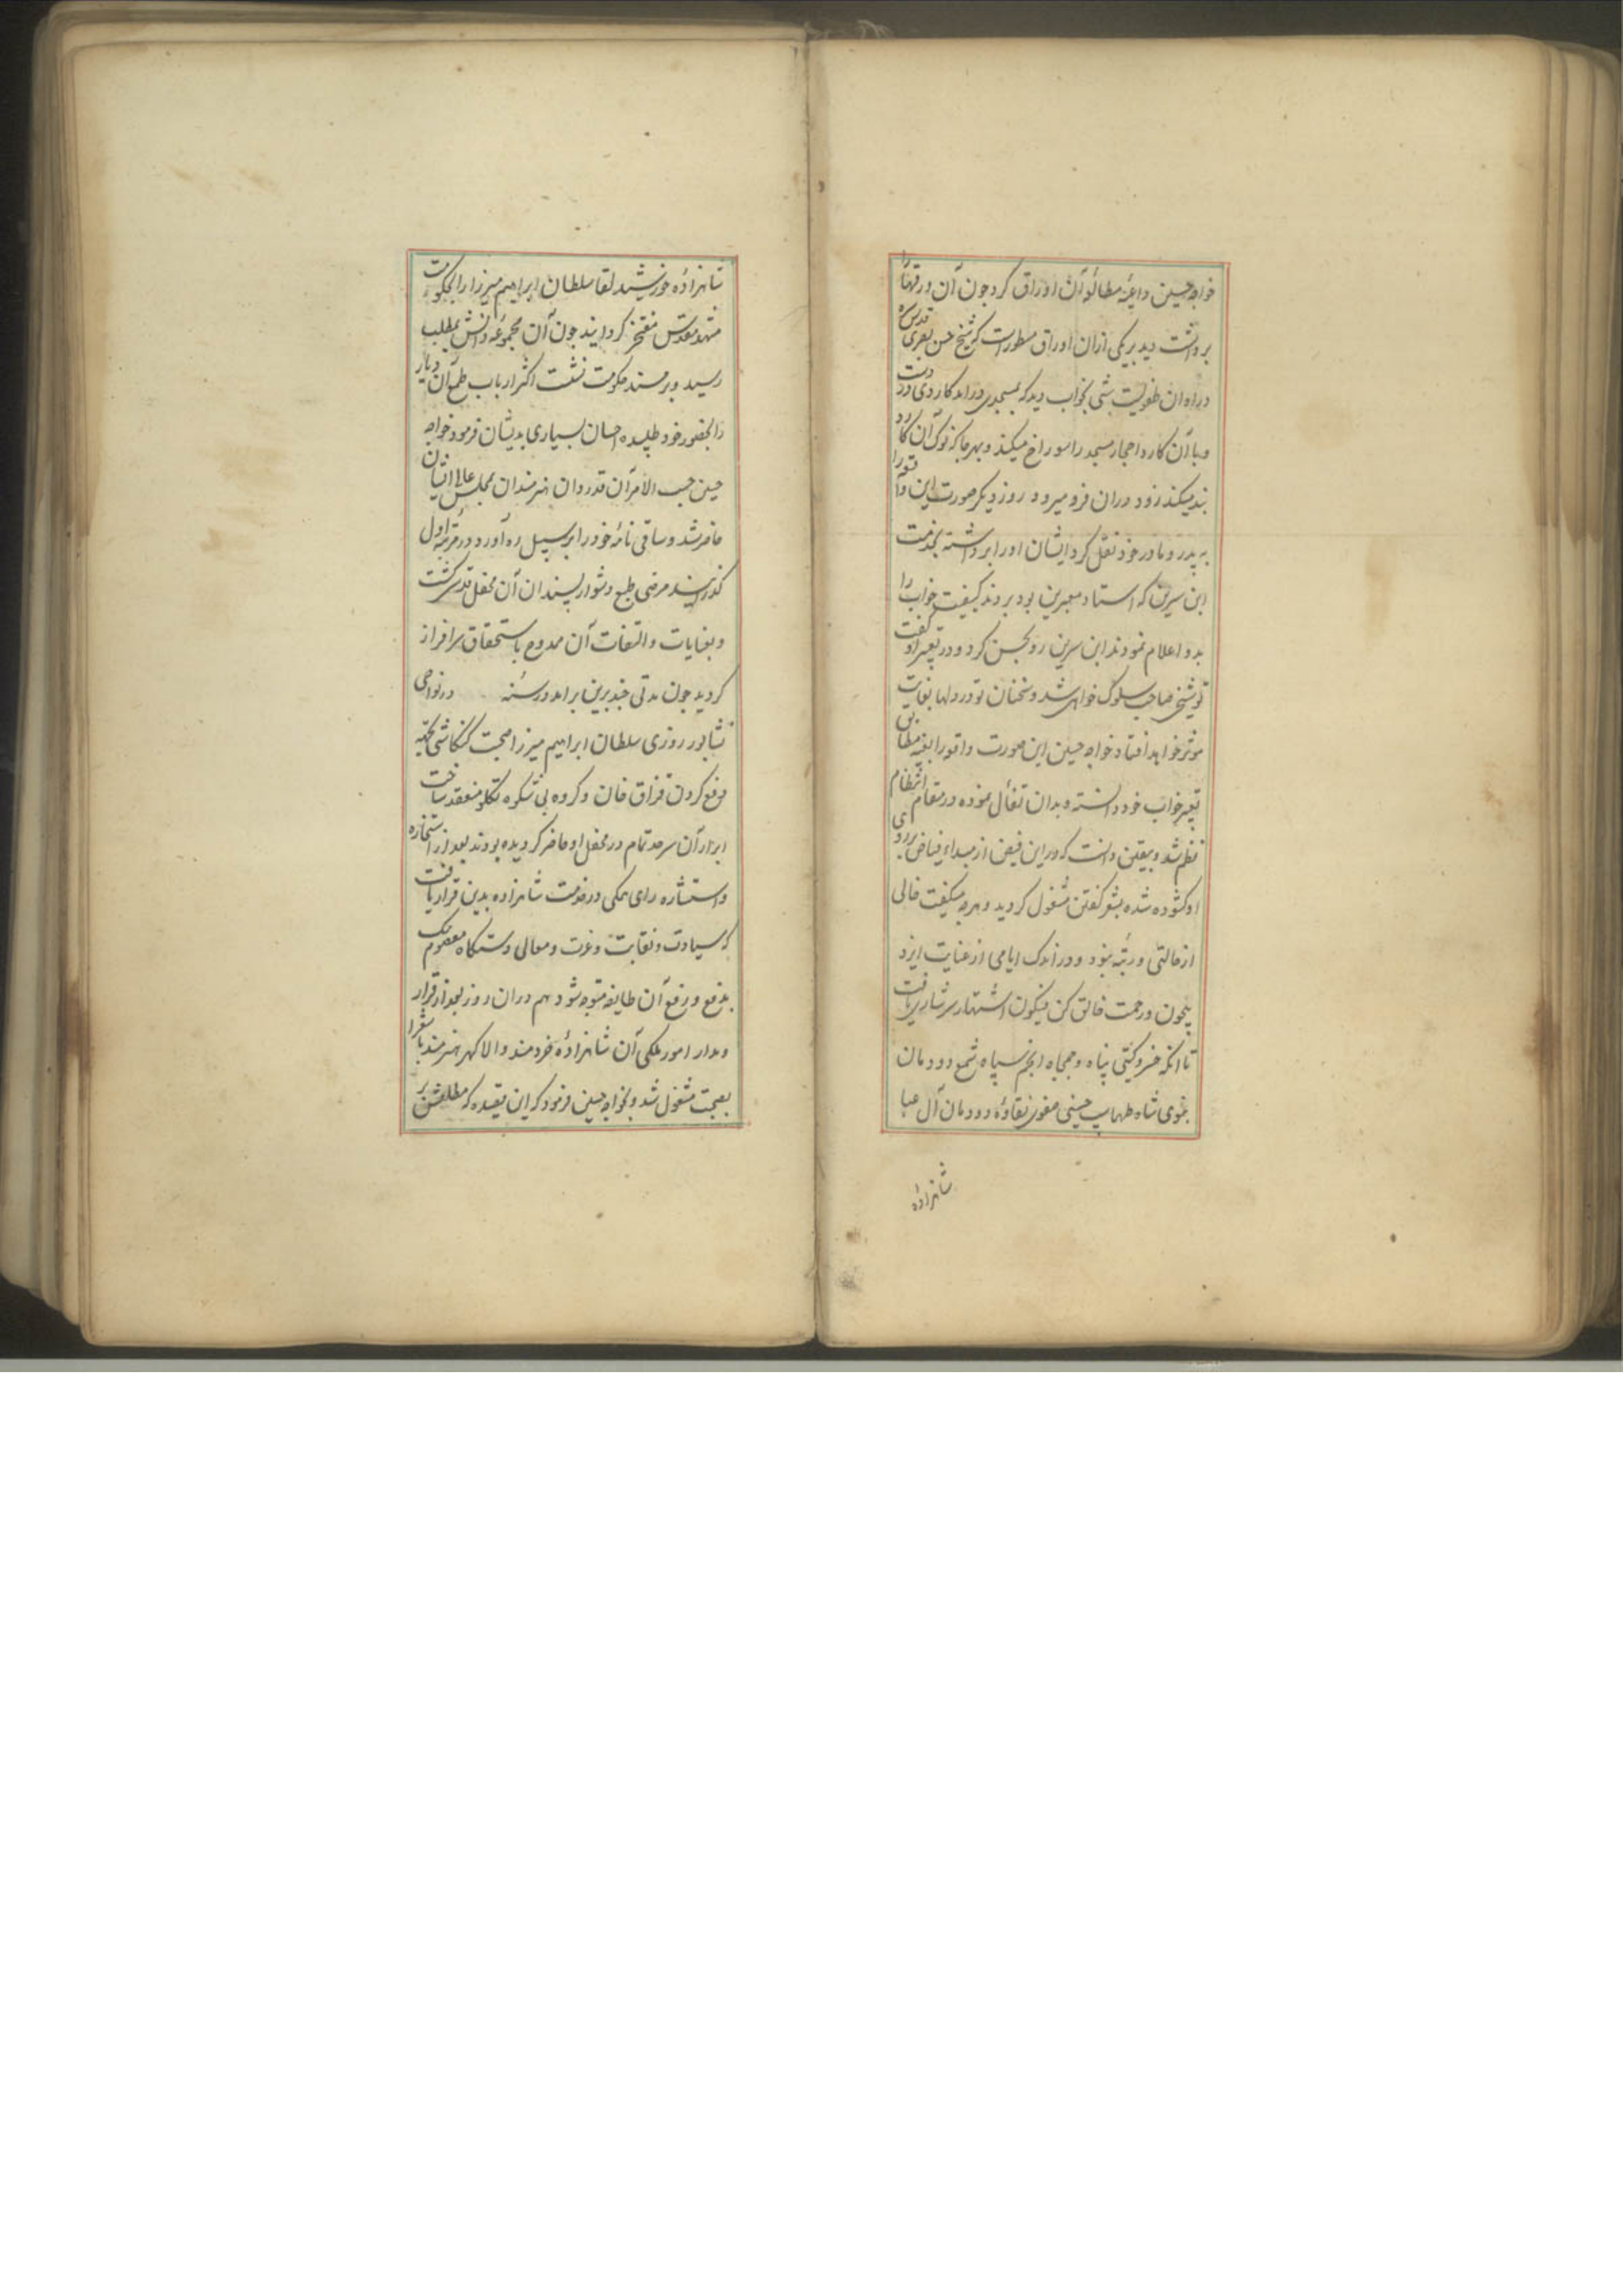 خواجه حسین داعیهٔ مطالعهٔ آن اوراق کرد چون آن ورقها را
برداشت دید بر یکی ازان اوراق مسطور است که شیخ حسن بصری قدس سره
دراوان طفولیت شبی بخواب دید که بمسجدی درامد کاردی در دست
و با آن کارد احجار مسجد را سوراخ میکند و بهر جا که نوک آن کارد
بند میکند زود دران فرو میرود روز دیگر صورت این واقعه را
به پدر و مادر خود نقل کرد ایشان او را برداشته بخدمت
ابن سیرین که استاد معبرین بود بردند کیفیت خواب را
بدو اعلام نمودند ابن سیرین رو بحسن کرد و در تعبیر او گفت
تو شیخی صاحب سلوک خواهی شد و سخنان تو در دلها بغایت
موثر خواهد افتاد خواجه حسین این صورت واقعه را بعینه مطابق
تعبیر خواب خود دانسته و بدان تفأل نموده در مقام انتظام
نظم شد و بیقین دانست که در این فیض از مبداء فیاض بر روی
او کشوده شده بشعر کفتن مشغول کردید و هرچه میکفت خالی
از حالتی و رتبه نبود و در اندک ایامی از عنایت ایزد
بیچون و رحمت خالق کن فیکون اشتهار سرشار یافت
تا انکه خسرو کیتی پناه و جمجاه انجم سپاه شمع دودمان
نبوی شاه طهماسب حسینی صفوی نقاوهٔ دودمان آل عبا
شاهزاده
شاهزادهٔ خورشید لقا سلطان ابراهیم میرزا را بحکومت
مشهد مقدس مفتخر کردانید چون آن مجموعهٔ دانش بمطلب
رسید و بر مسند حکومت نشست اکثر ارباب طبع آن دیار
را بحضور خود طلبیده احسان بسیاری بدیشان فرمود خواجه
حسین حسب الامر آن قدردان هنرمندان بمجلس عالی ایشان
حاضر شد و ساقی نامهٔ خود را بر سبیل ره آورد در مرتبه اول
کذرانید مرضی طبع دشوار پسندان آن محفل قدس کشت
و بعنایات و التفات آن ممدوح باستحقاق سرافراز
کردید چون مدتی چند برین برامد در سنه در نواحی
نشابور روزی سلطان ابراهیم میرزا صحبت کنکاشی بجهة
دفع کردن قزاق خان و کروه بی شکوه تکلو منعقد ساخت
امراء آن سرحد تمام در محفل او حاضر کردیده بودند بعد از استخاره
و استشاره رای همکی در خدمت شاهزاده بدین قرار یافت
که سیادت و نقابت و عزت و معالی دستکاه معصوم بیک
بدفع و رفع آن طایفه متوجه شود هم دران روز بعد از قرار
و مدار امور ملکی آن شاهزادهٔ خردمند والا کهر هنرمند با شعرا
بصحبت مشغول شد و بخواجه حسین فرمود که این قصیده که مطلعش